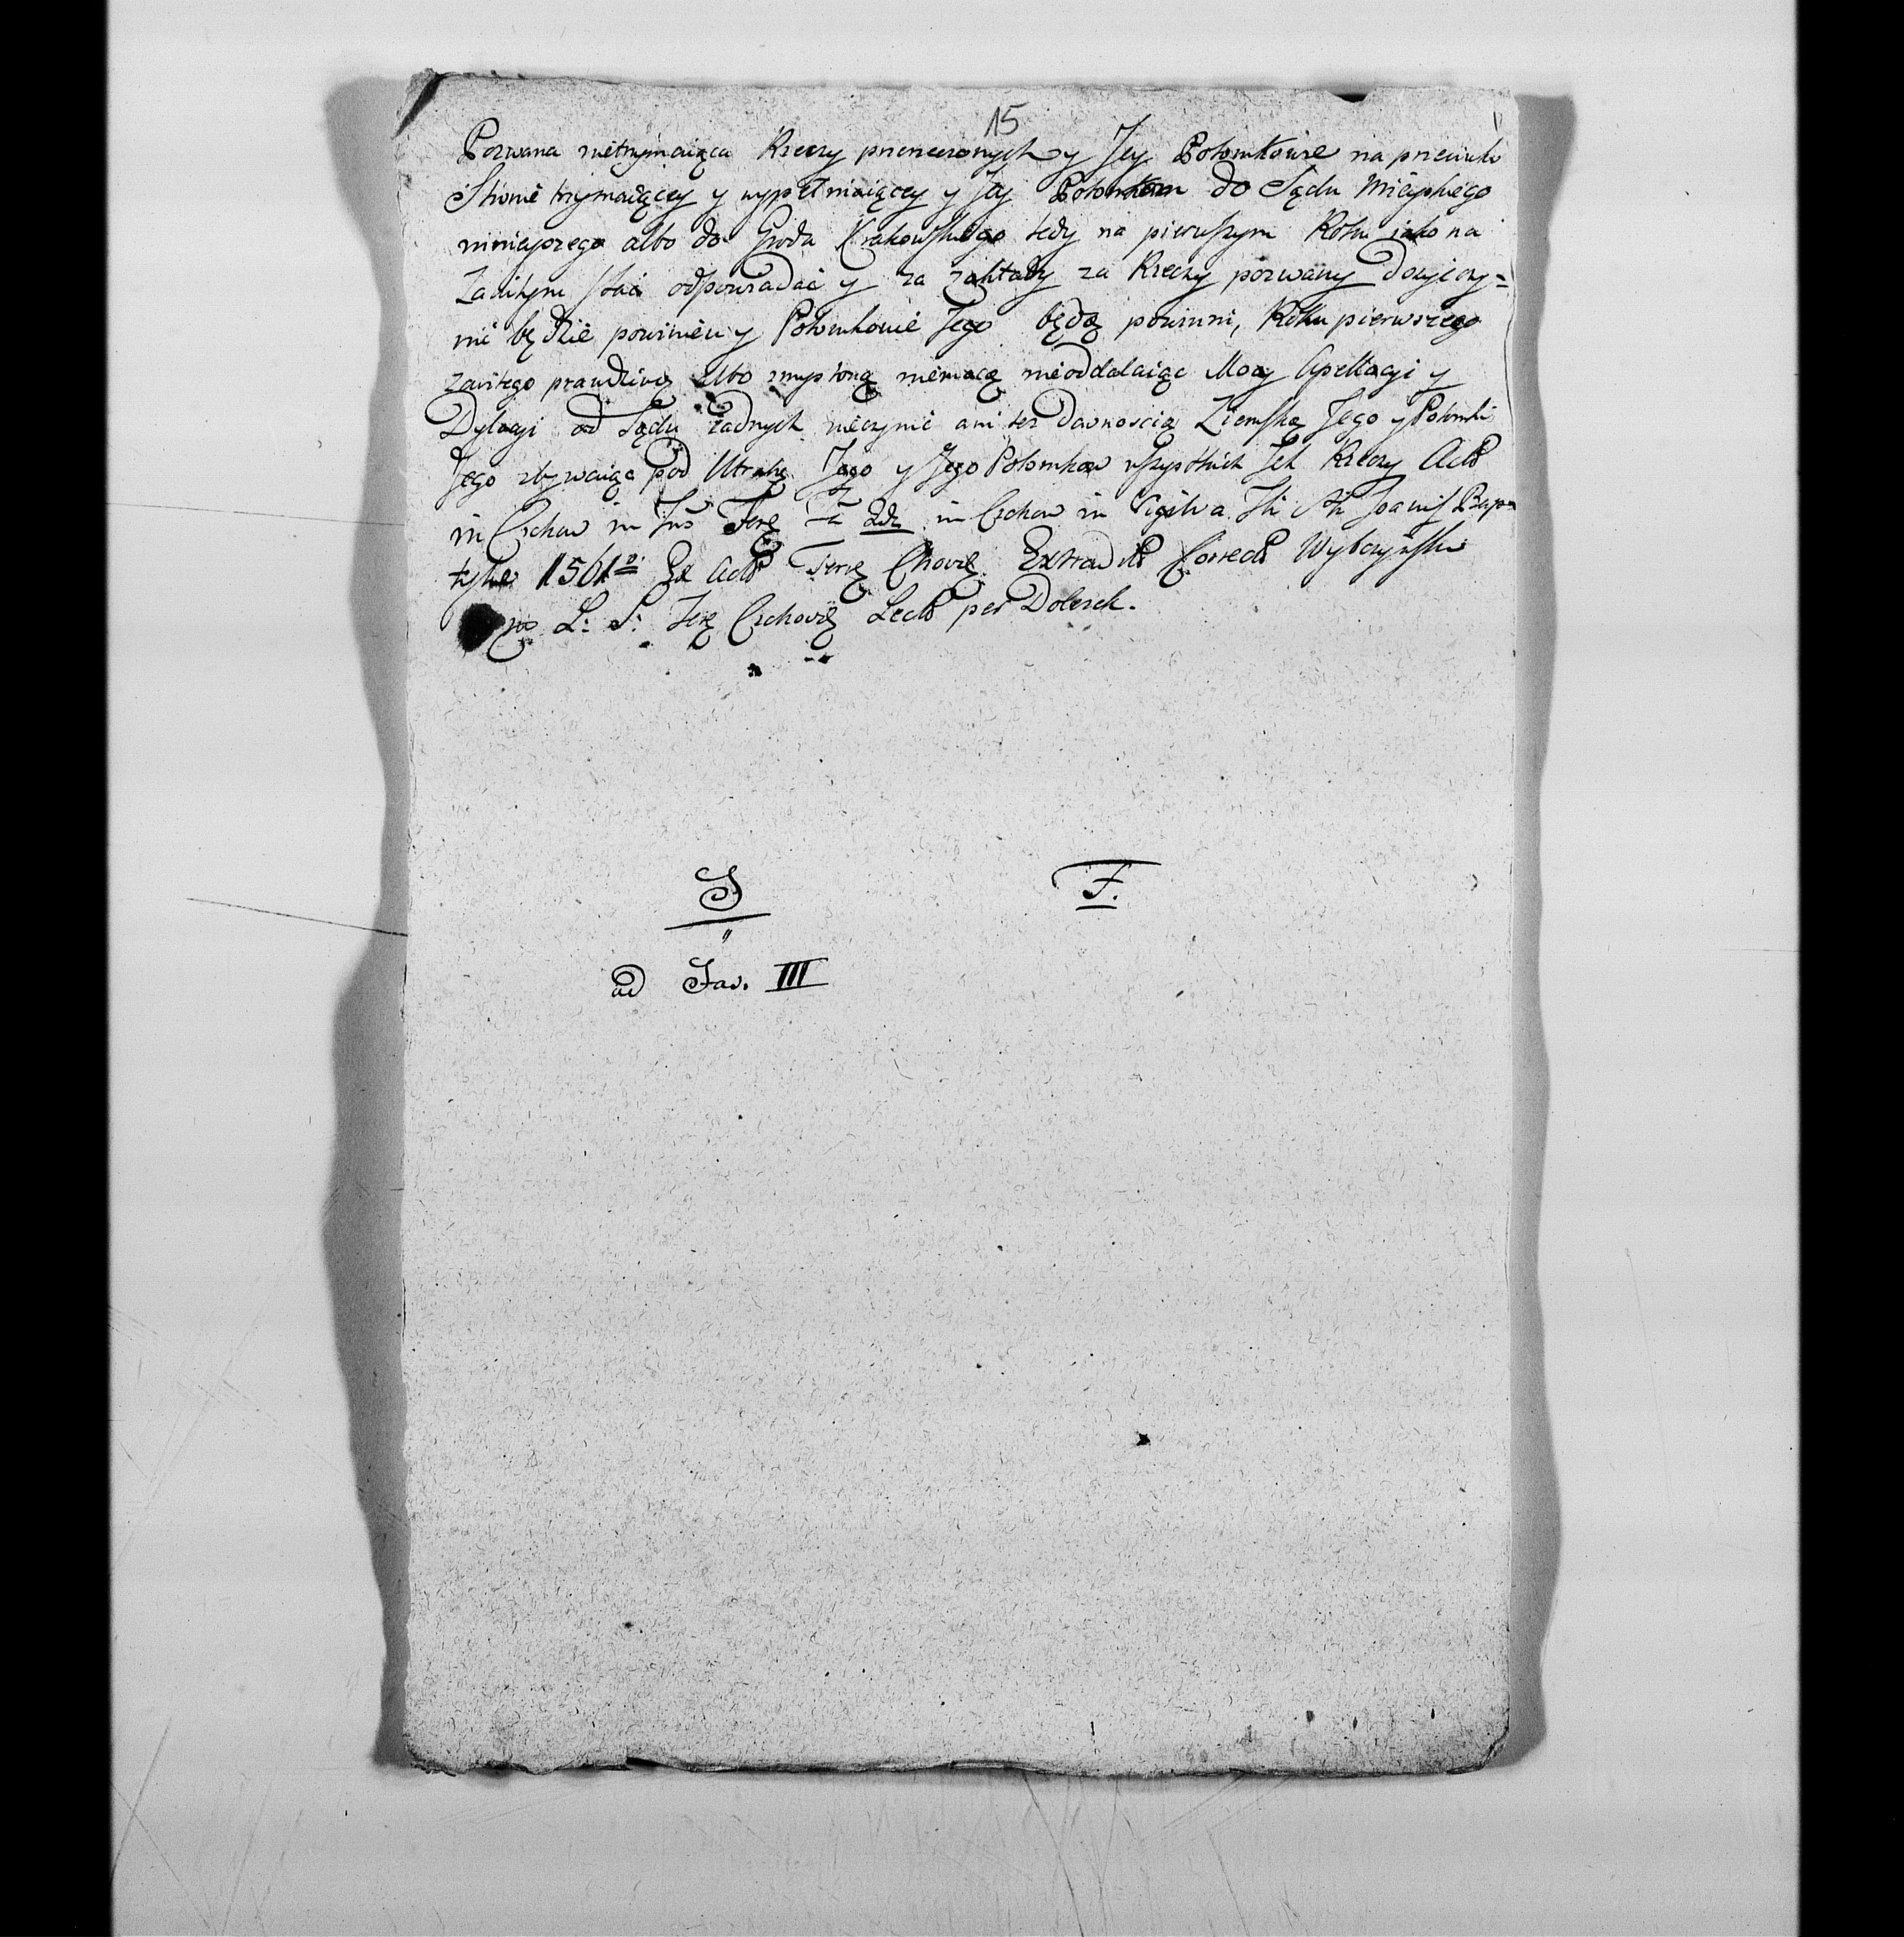 15
Pozwana nietrzymaiąca Rzeczy przerzeczonych y Jey Potomkowie na przeciwko
Stronie trzymaiącey y wypełniaiącey y Jey Potomkom do Sądu Mieyskiego
ninieyszego albo do Grodu Krakowskiego tedy na pierwszym Roku iako na
Zawitym stać odpowiadać y za zakłady za Rzeczy pozwany dosyć czy=
nić będzie powinien y Potomkowie Jego będą powinni, Roku pierwszego
zawitego prawdziwą albo zmysloną niemocą nieoddalaiąc Mocy Apellacyi y
Dylacyi od Sądu żadnych nieczynić ani też dawnoscią Ziemską Jego y Potomki
Jego zbywaiąc pod Utratą Jego y Jego Potomkow wszystkich Jch Rzeczy Actũ
in Czchow in in Czchow in Vigilia Sti Joanis Bap=
tystæ 1561º Ex Actũ Czchovię Extraditũ Correctũ Wybczyński
L: S: Czchovię Lectũ per Dolesch.
J
F.
ad Fas. III